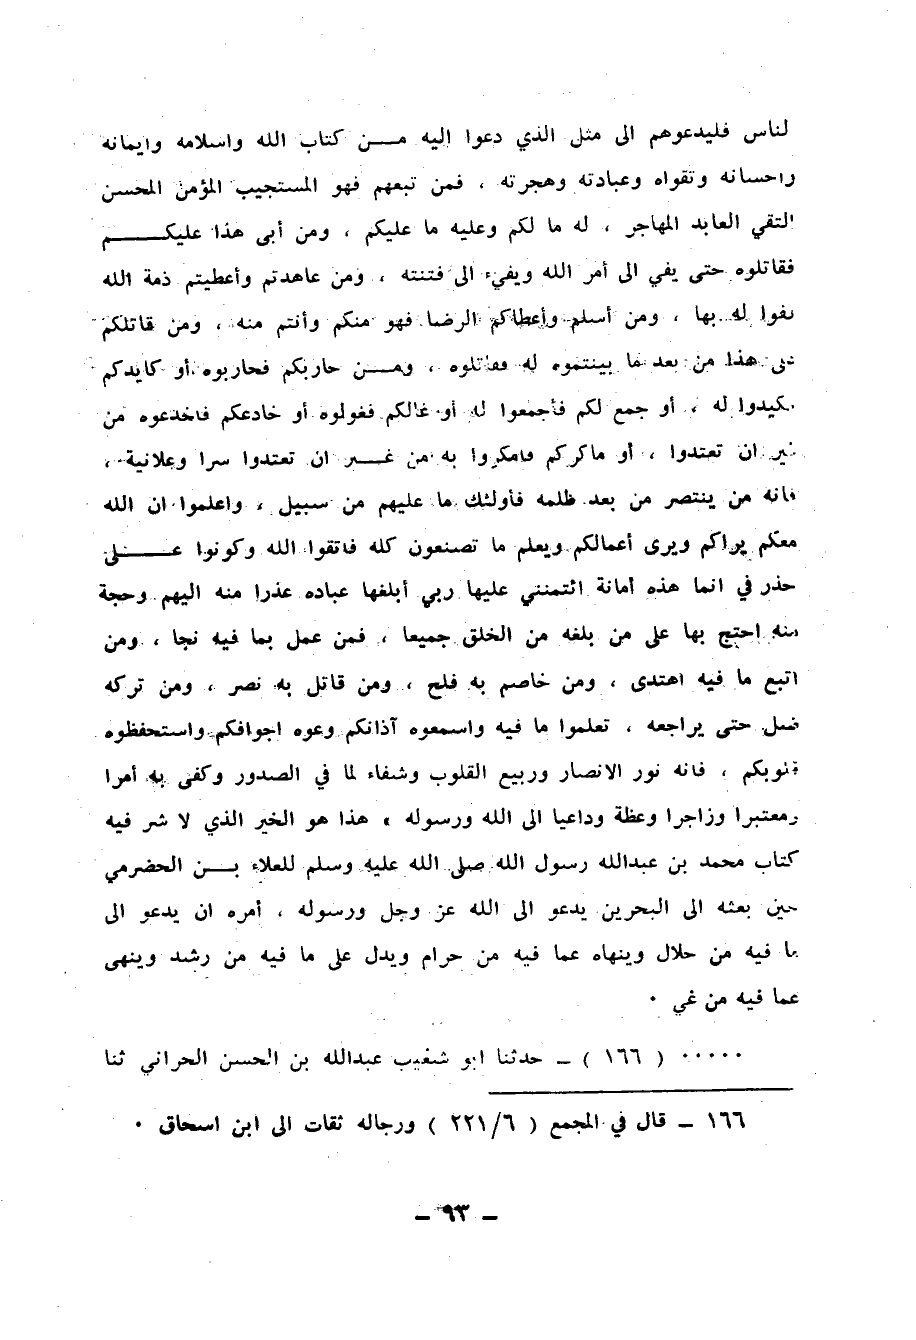 لناس فليدعوهم الى مثل الذي دعوا اليه مـــن كتاب الله واسلامه وايمانه
راحسانه وتقواه وعبادته وهجرته ، فمن تبعهم فهو المستجيب المؤمن المحسن
التقي العابد المهاجر ، له ما لكم وعليه ما عليكم ، ومن أبى هذا عليكـــــم
فقاتلوه حتى يفي الى أمر الله ويفيء الى فتنته ، ومن عاهدتم وأعطيتم ذمة الله
فوا له بها ، ومن أسلم وأعطاكم الرضا فهو منكم وأنتم منه ، ومن قاتلكم
هذا من بعد ما بينتموه له فقاتلوه ، ومـــن حاربكم فحاربوه أو كايدكم
كيدوا له ، أو جمع لكم فأجمعوا له أو غالكم فغولوه أو خادعكم فاخدعوه من
ير ان تعتدوا ، أو ماكركم فامكروا به من غـــير ان تعتدوا سرا وعلانية ،
فانه من ينتصر من بعد ظلمه فأولئك ما عليهم من سبيل ، واعلموا ان الله
معكم يراكم ويرى أعمالكم ويعلم ما تصنعون كله فاتقوا الله وكونوا عـــــلى
حذر في انما هذه أمانة ائتمنني عليها ربي أبلغها عباده عذرا منه اليهم وحجة
منه احتج بها على من بلغه من الخلق جميعا ، فمن عمل بما فيه نجا ، ومن
اتبع ما فيه اهتدى ، ومن خاصم به فلح ، ومن قاتل به نصر ، ومن تركه
ضل حتى يراجعه ، تعلموا ما فيه واسمعوه آذانكم وعوه اجوافكم واستحفظوه
قلوبكم ، فانه نور الانصار وربيع القلوب وشفاء لما في الصدور وكفى به أمرا
ومعتبرا وزاجرا وعظة وداعيا الى الله ورسوله ، هذا هو الخير الذي لا شر فيه
كتاب محمد بن عبدالله رسول الله صلى الله عليه وسلم للعلاء بـــن الحضرمي
حين بعثه الى البحرين يدعو الى الله عز وجل ورسوله ، أمره ان يدعو الى
ما فيه من حلال وينهاه عما فيه من حرام ويدل على ما فيه من رشد وينهى
عما فيه من غي .
..... ( ١٦٦ ) ــ حدثنا ابو شعيب عبدالله بن الحسن الحراني ثنا
١٦٦ ــ قال في المجمع ( ٢٢١/٦ ) ورجاله ثقات الى ابن اسحاق .
ــ ٩٣ ــ